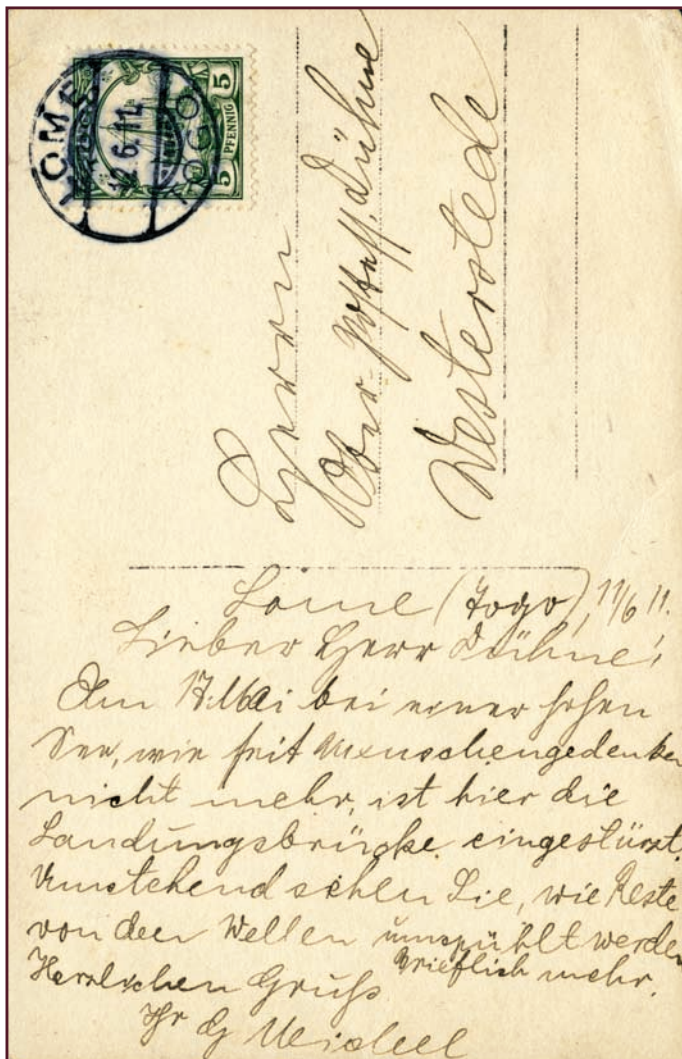 LOME
12.6.11
TOGO
5 PFENNIG 5
Herrn
Ober-Postass. Dühne
Westerstede
Lome (Togo), 11/6 11.
Lieber Herr Dühne!
Am 17. Mai bei einer hohen
See, wie seit Menschengedenken
nicht mehr, ist hier die
Landungsbrücke eingestürzt.
Umstehend sehen Sie, wie Reste
von den Wellen umspühlt werden
Brieflich mehr.
Herzlichen Gruß
Ihr G